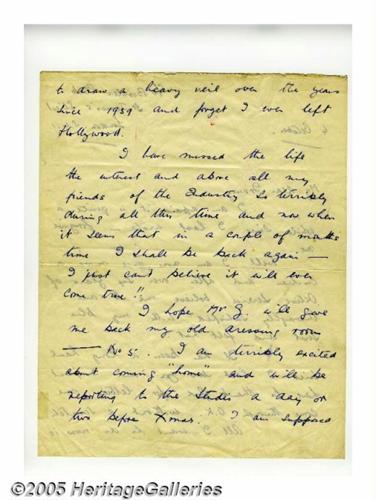 to draw a heavy veil over the years
since 1939 and forget I ever left
Hollywood.
I have missed the life
the interest and above all my
friends of the Industry so terribly
during all this time and now when
it seems that in a couple of months
time I shall be back again —
I just can't believe it will ever
come true!!
I hope Mr G will give
me back my old dressing room
— No 5. I am terribly excited
about coming "home" and will be
reporting to the Studio a day or
two before Xmas. I am supposed
©2005 HeritageGalleries